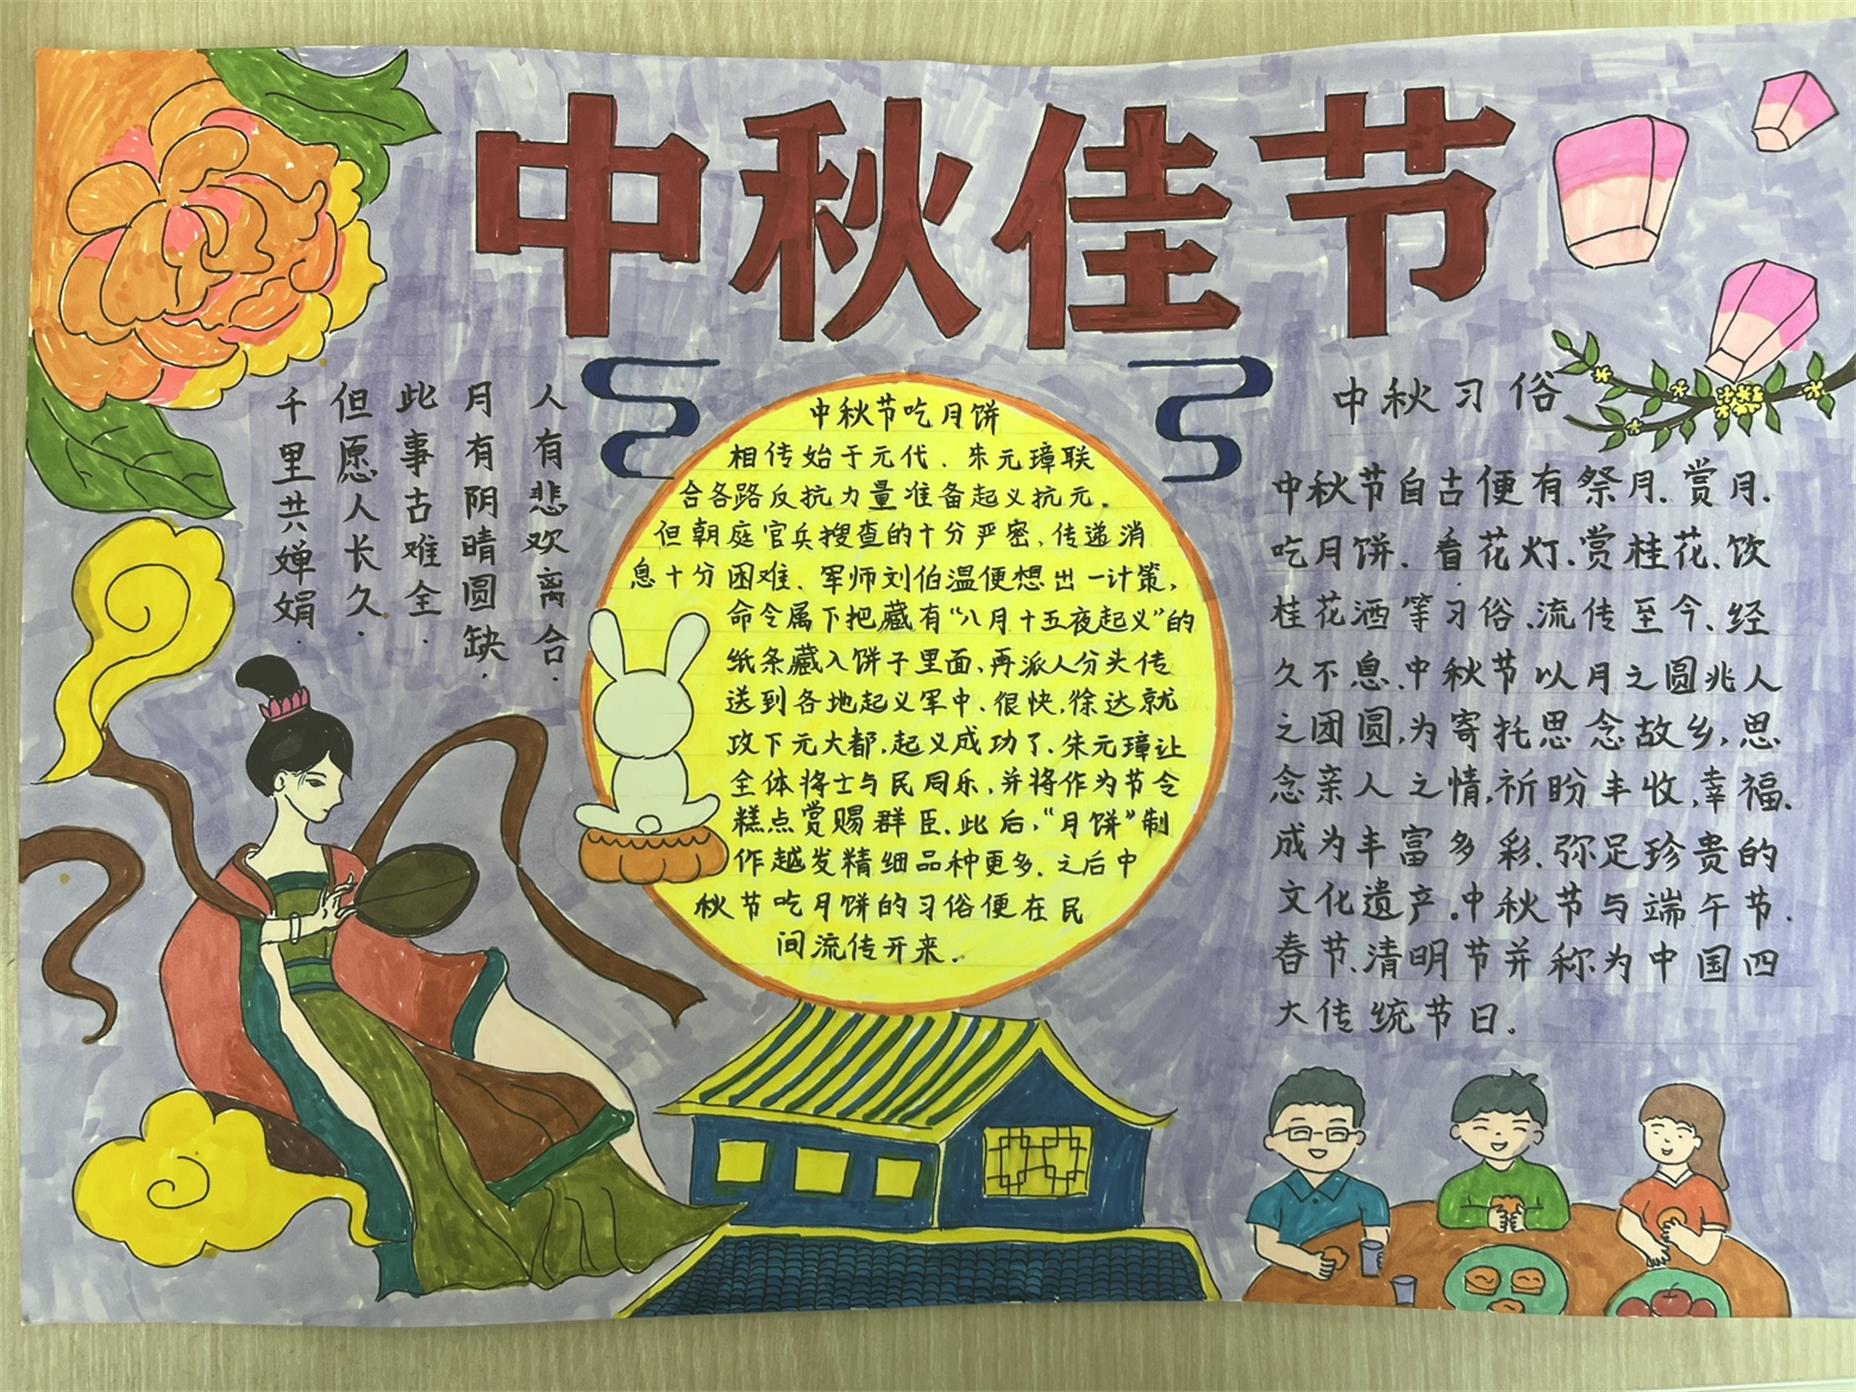 中秋佳节
人有悲欢离合.
月有阴晴圆缺.
此事古难全.
但愿人长久.
千里共婵娟.
中秋节吃月饼
相传始于元代.朱元璋联
合各路反抗力量准备起义抗元.
但朝庭官兵搜查的十分严密,传递消
息十分困难.军师刘伯温便想出一计策,
命令属下把藏有“八月十五夜起义”的
纸条藏入饼子里面,再派人分头传
送到各地起义军中.很快,徐达就
攻下元大都,起义成功了.朱元璋让
全体将士与民同乐,并将作为节令
糕点赏赐群臣.此后,“月饼”制
作越发精细品种更多.之后中
秋节吃月饼的习俗便在民
间流传开来.
中秋习俗
中秋节自古便有祭月.赏月.
吃月饼.看花灯.赏桂花.饮
桂花酒等习俗.流传至今.经
久不息.中秋节以月之圆兆人
之团圆,为寄托思念故乡,思
念亲人之情,祈盼丰收,幸福.
成为丰富多彩.弥足珍贵的
文化遗产.中秋节与端午节.
春节.清明节并称为中国四
大传统节日.